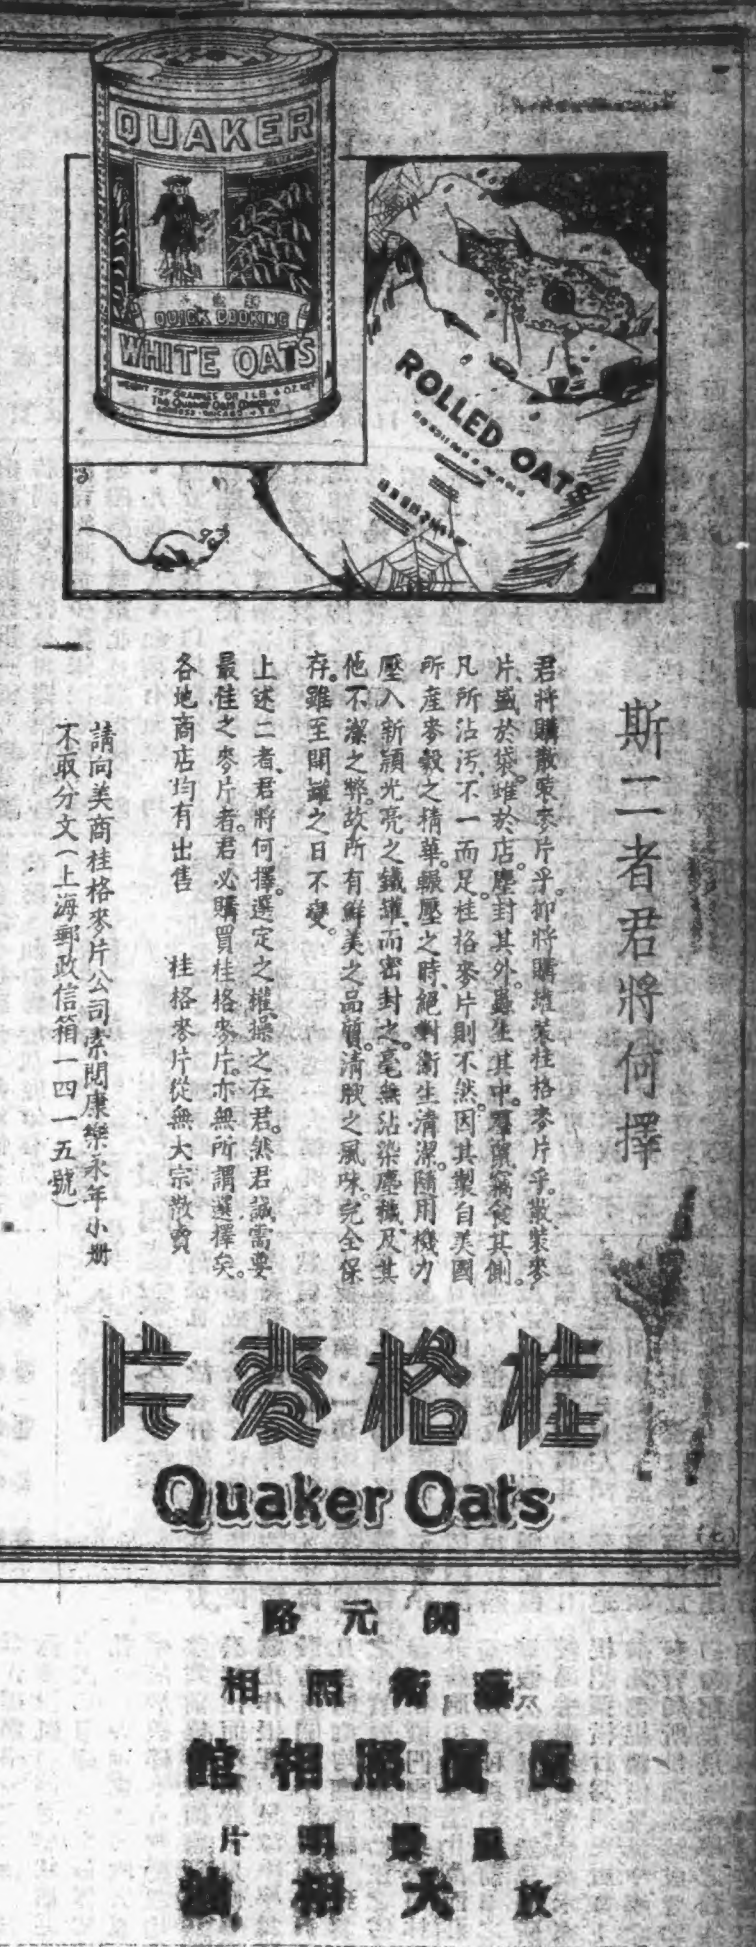 QUAKER
QUICK COOKING
WHITE OATS
WEIGHT 567 GRAMMES OR 1 LB 4 OZ NET
The Quaker Oats Company
ADDRESS · CHICAGO · U S A
ROLLED OATS
斯二者君將何擇
君將購散裝麥片乎。抑將購罐裝桂格麥片乎。散裝麥
片、盛於袋。雖於店。塵封其外。蟲生其中。羣鼠竊食其側。
凡所沾汚、不一而足。桂格麥片則不然。因其製自美國
所產麥穀之精華。輾壓之時、絕對衛生清潔。隨用機力
壓入新穎光亮之鐵罐、而密封之。毫無沾染塵穢、及其
他不潔之弊。故所有鮮美之品質。清腴之風味。完全保
存。雖至開罐之日不變。
上述二者、君將何擇。選定之權、操之在君。然君誠需要
最佳之麥片者。君必購買桂格麥片。亦無所謂選擇矣。
各地商店均有出售　桂格麥片從無大宗散賣
請向美商桂格麥片公司索閱康樂永年小册
不取分文（上海郵政信箱一四一五號）
桂格麥片
Quaker Oats
(七)
開元路
藝術照相
真真照相館
風景明片
放大相油